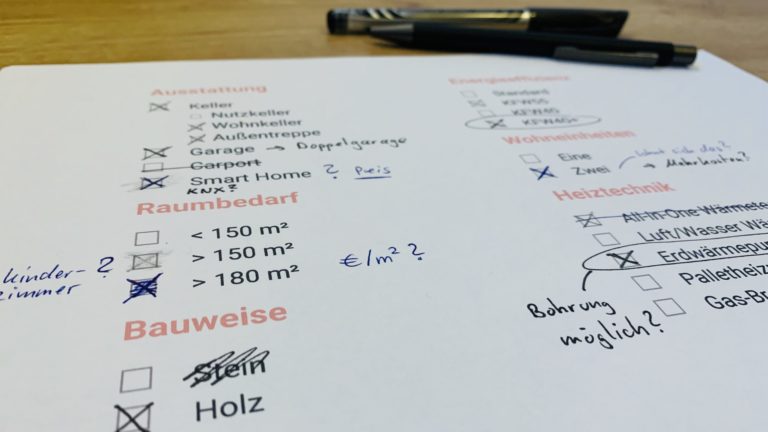 Ausstattung
Keller
Nutzkeller
Wohnkeller
Außentreppe
Garage → Doppelgarage
Carport
Smart Home ? Preis
KNX?
Raumbedarf
< 150 m²
> 150 m²
> 180 m²
kinder-
zimmer ?
€/m² ?
Bauweise
Stein
Holz
Energieeffizienz
Standard
KFW55
KFW40
KFW40+
Wohneinheiten
Eine
Zwei
lohnt sich das?
→ Mehrkosten?
Heiztechnik
All-In-One Wärmete
Luft/Wasser Wä
Erdwärmepu
Palletheiz
Gas-Br
Bohrung
möglich?